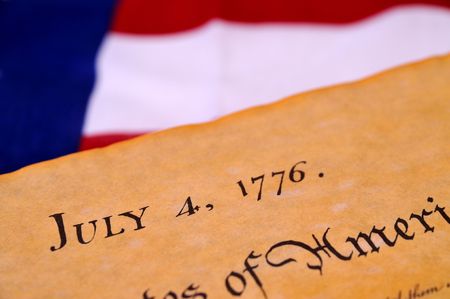 July 4, 1776.
tes of Ameri
them